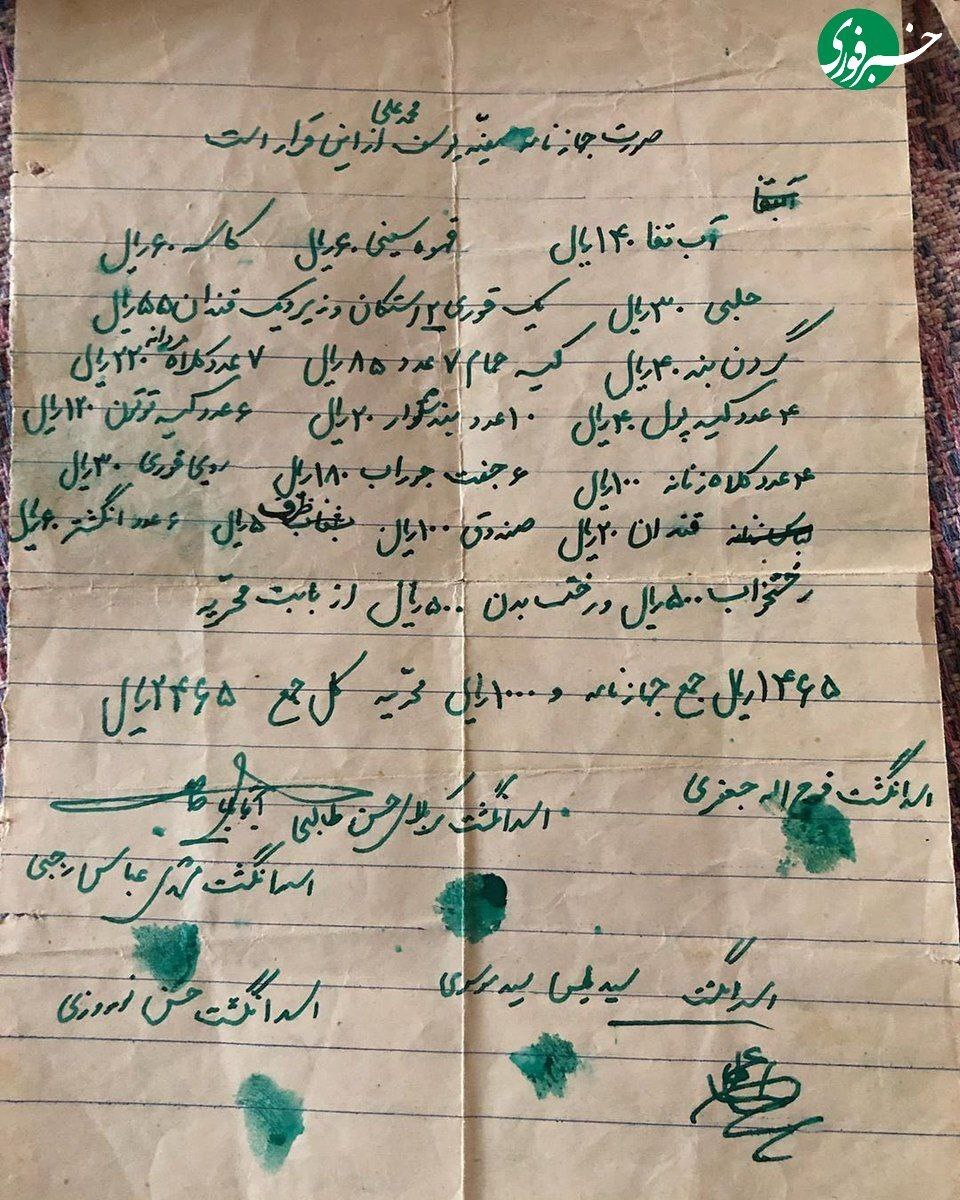 خبرفوری
محمد علی
صورت جهازنامه از این قرار است
آب تفا ۱۴۰ ریال قهوه سینی ۶۰ ریال کاسه ۶۰ ریال
حلبی ۳۰ ریال یک قوری ۲ استکان و زیر و یک قندان ۵۵ ریال
گردن بند ۴۰ ریال کیسه حمام ۷ عدد ۸۵ ریال ۷ عدد کلاه مردانه ۲۲۰ ریال
۴ عدد کیسه پول ۴۰ ریال ۱۰ عدد بند شلوار ۲۰ ریال ۶ عدد کیسه توتون ۱۲۰ ریال
۴ عدد کلاه زنانه ۱۰۰ ریال ۶ جفت جوراب ۱۸۰ ریال روی قوری ۳۰ ریال
قندان ۲۰ ریال صندوق ۱۰۰ ریال ظرف ۵ ریال ۶ عدد انگشتر ۶۰ ریال
رختخواب ۵۰۰ ریال و رخت بدن ۵۰۰ ریال از بابت محریه
۱۴۶۵ ریال جمع جهازنامه و ۱۰۰۰ ریال محریه کل جمع ۲۴۶۵ ریال
اسد انگشت فرج اله جعفری
اسد انگشت کربلای حسن طالبی
اسد انگشت مشهدی عباس رجبی
اسد انگشت سید سید موسوی
اسد انگشت حسن نوروزی